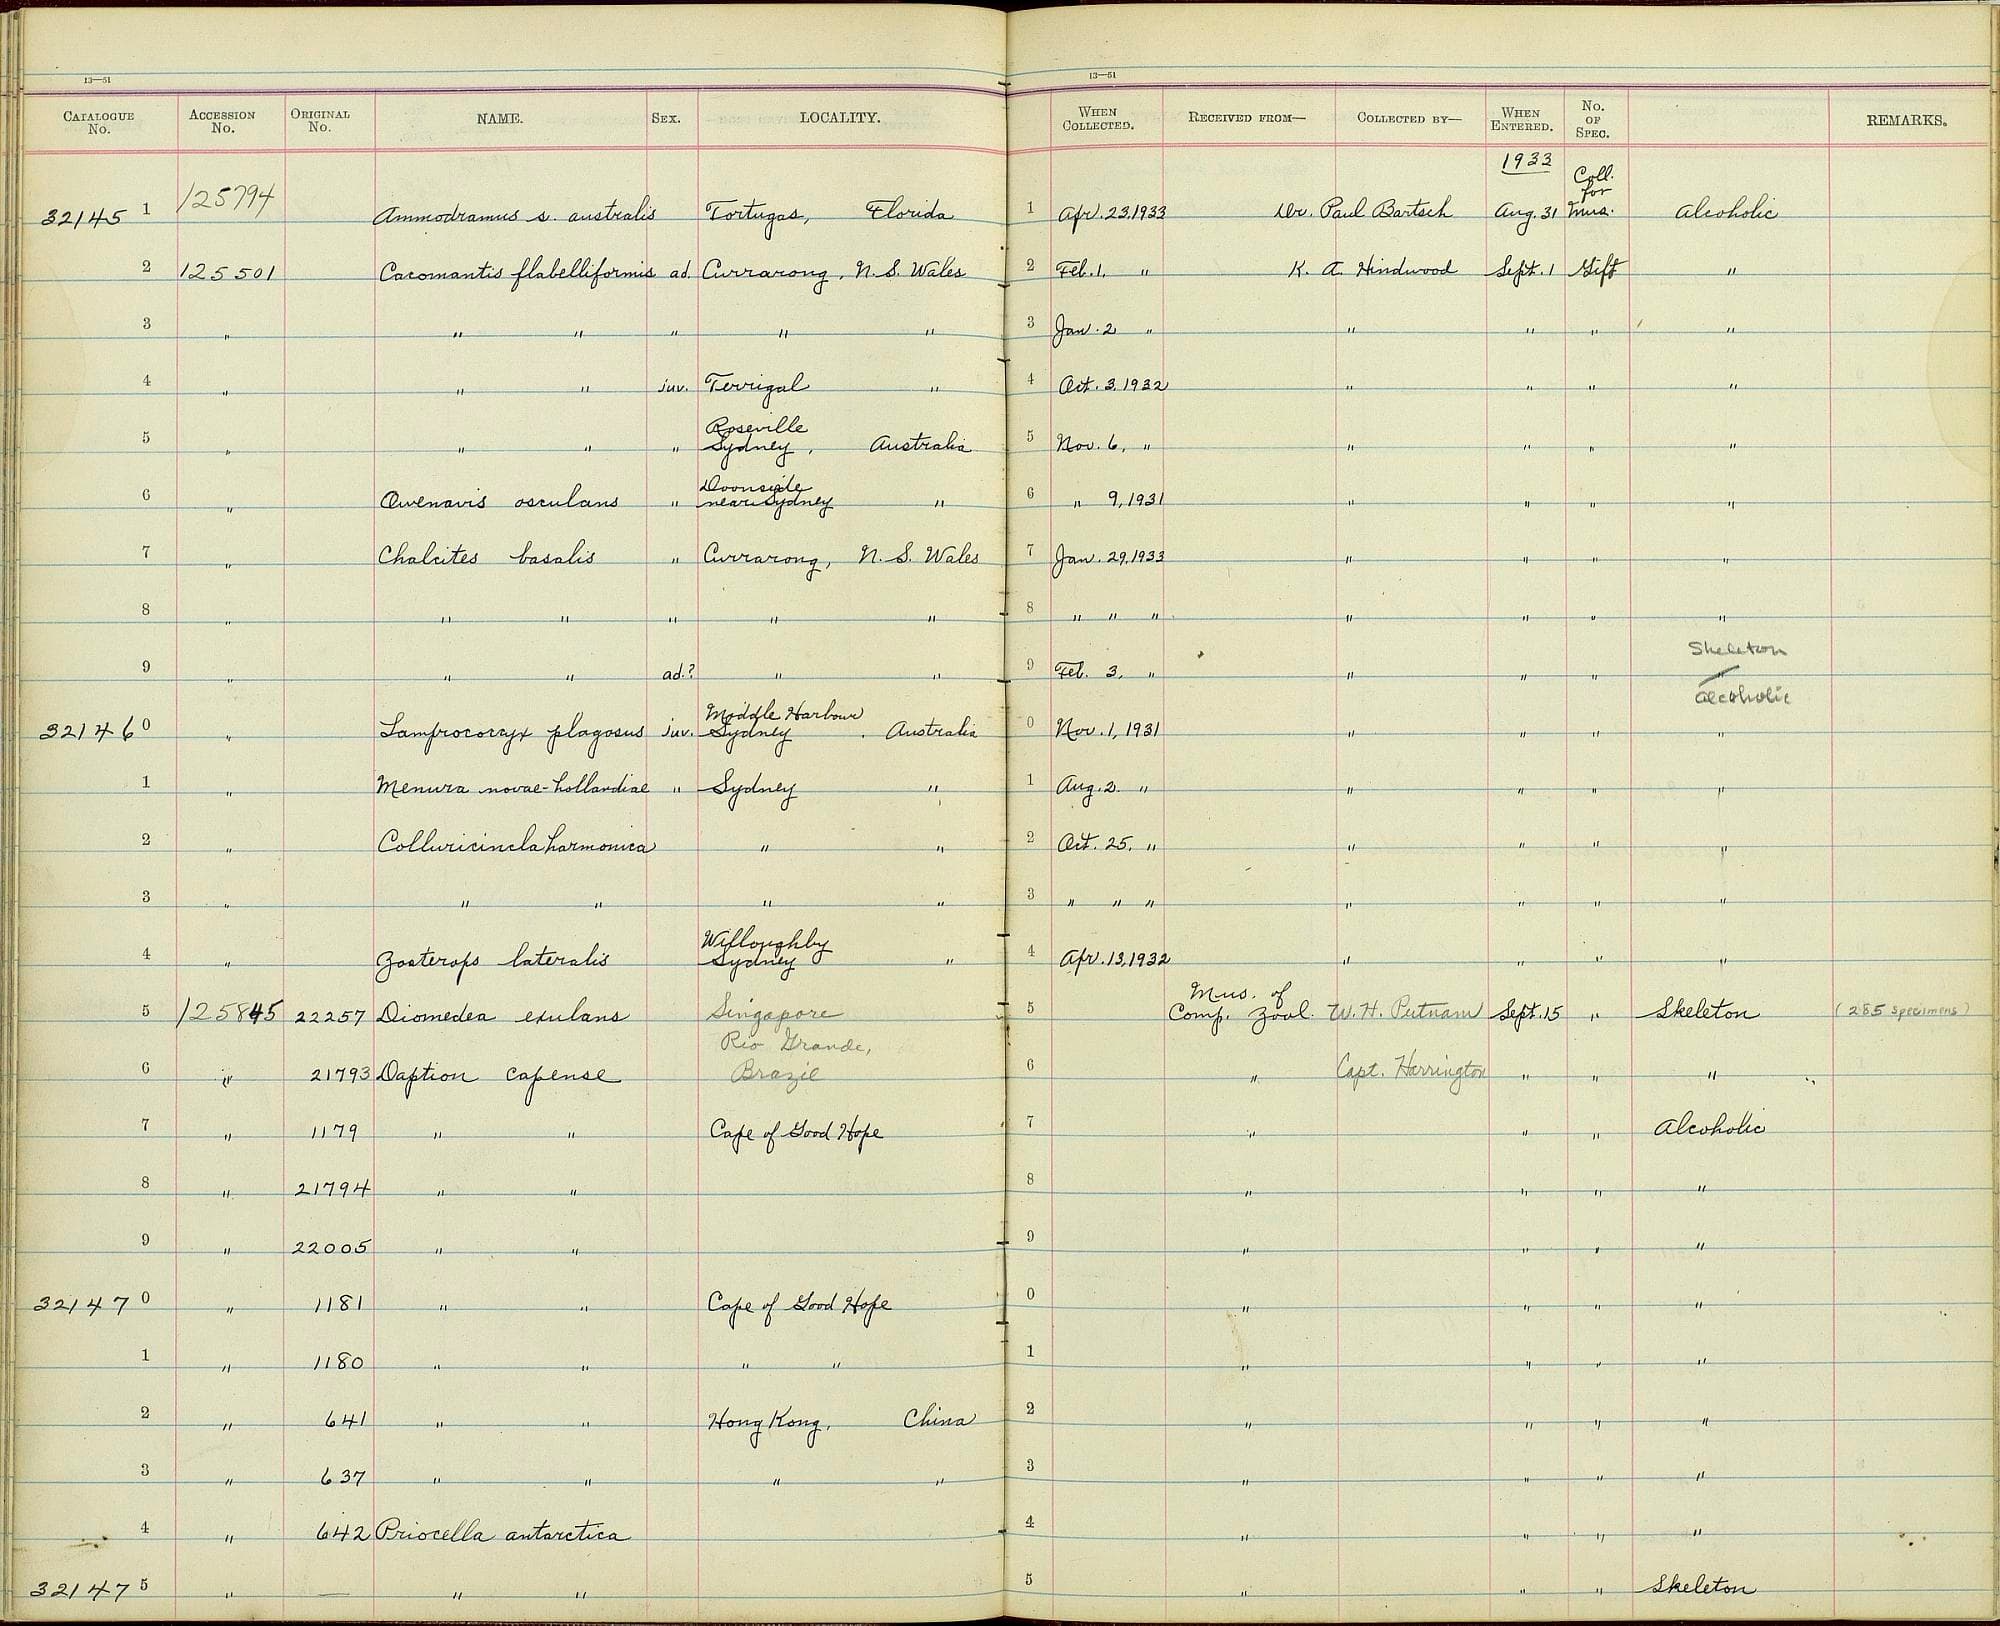 13—51 13—51
CATALOGUE No. ACCESSION No. ORIGINAL No. NAME. SEX. LOCALITY. WHEN COLLECTED. RECEIVED FROM— COLLECTED BY— WHEN ENTERED. No. OF SPEC. REMARKS.
1933
Coll. for
32145 1 125794 Ammodramus s. australis Tortugas, Florida 1 Apr. 23, 1933 Dr. Paul Bartsch Aug. 31 Mus. Alcoholic
2 125501 Cacomantis flabelliformis ad. Currarong, N. S. Wales 2 Feb. 1, " K. A. Hindwood Sept. 1 Gift "
3 " " " " " " 3 Jan. 2 " " " " "
4 " " " juv. Terrigal " 4 Oct. 3, 1932 " " " "
Roseville
5 " " " " Sydney, Australia 5 Nov. 6, " " " " "
Doonside
6 " Owenavis osculans " near Sydney " 6 " 9, 1931 " " " "
7 " Chalcites basalis " Currarong, N. S. Wales 7 Jan. 29, 1933 " " " "
8 " " " " " " 8 " " " " " " "
Skeleton
9 " " " ad.? " " 9 Feb. 3, " " " " "
Alcoholic
Middle Harbour
32146 0 " Lamprococcyx plagosus juv. Sydney, Australia 0 Nov. 1, 1931 " " " "
1 " Menura novae-hollandiae " Sydney " 1 Aug. 2, " " " " "
2 " Colluricincla harmonica " " 2 Oct. 25, " " " " "
3 " " " " " 3 " " " " " " "
Willoughby
4 " Zosterops lateralis Sydney " 4 Apr. 13, 1932 " " " "
Mus. of
5 125845 22257 Diomedea exulans Singapore 5 Comp. Zool. W. H. Putnam Sept. 15 " Skeleton (285 specimens)
Rio Grande,
6 " 21793 Daption capense Brazil 6 " Capt. Harrington " " "
7 " 1179 " " Cape of Good Hope 7 " " " Alcoholic
8 " 21794 " " 8 " " " "
9 " 22005 " " 9 " " " "
32147 0 " 1181 " " Cape of Good Hope 0 " " " "
1 " 1180 " " " " 1 " " " "
2 " 641 " " Hong Kong, China 2 " " " "
3 " 637 " " " " 3 " " " "
4 " 642 Priocella antarctica 4 " " " "
32147 5 " — " " 5 " " " Skeleton